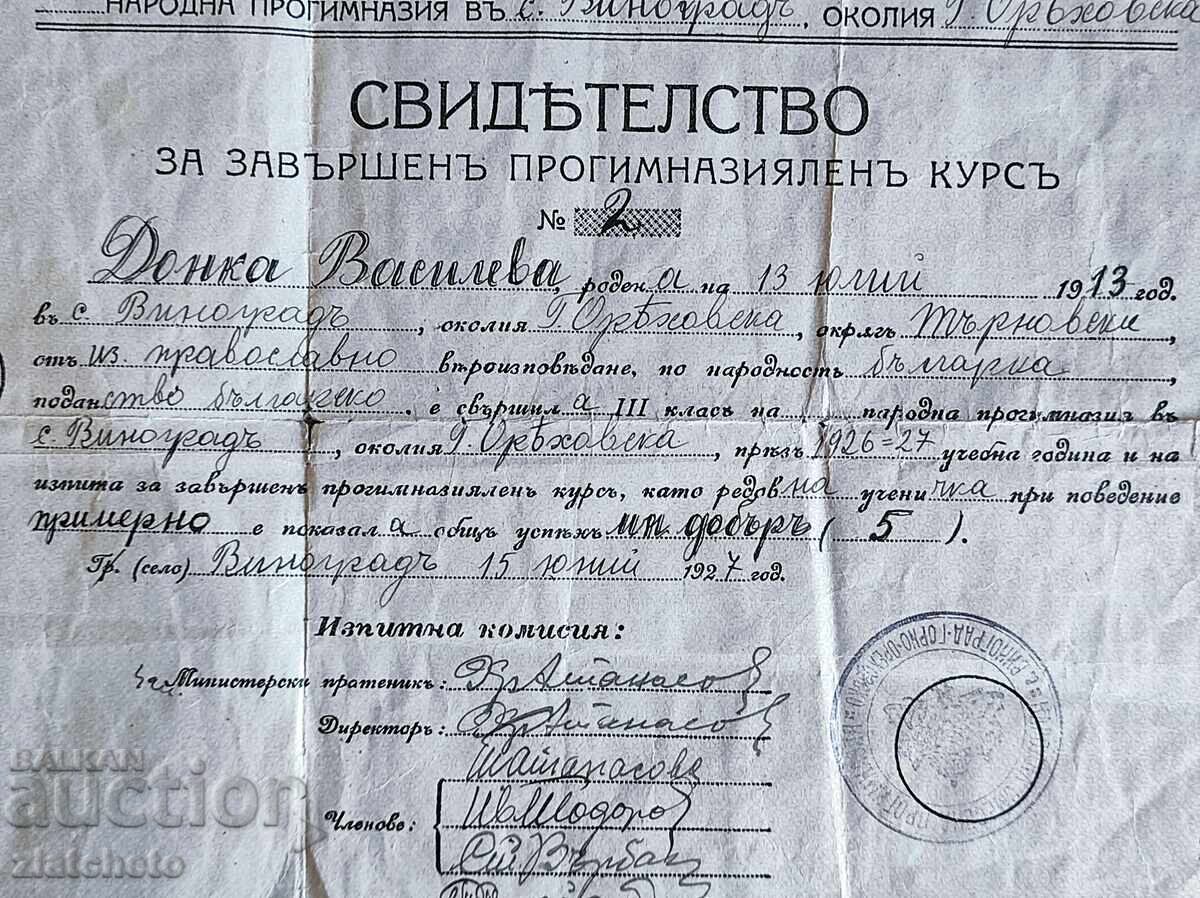 НАРОДНА ПРОГИМНАЗИЯ ВЪ с. Виноградъ, ОКОЛИЯ Г. Орѣховска
СВИДѢТЕЛСТВО
ЗА ЗАВЪРШЕНЪ ПРОГИМНАЗИЯЛЕНЪ КУРСЪ
№ 2
Донка Василева, роден а на 13 юлий 1913 год.
въ с. Виноградъ, околия Г. Орѣховска, окрягъ Търновски,
отъ из. православно вѣроизповѣдане, по народность българка,
поданство българско, е свършил а III класъ на народна прогимназия въ
с. Виноградъ, околия Г. Орѣховска, прѣзъ 1926=27 учебна година и на
изпита за завършенъ прогимназияленъ курсъ, като редов на учени чка при поведение
примерно е показал а общъ успѣхъ мн добъръ ( 5 ).
Гр. (село) Виноградъ 15 юний 1927 год.
Изпитна комисия:
Министерски пратеникъ: Хр Атанасов
Директоръ: Хр Атанасов
Членове:
BALKAN
auction
zlatcheto